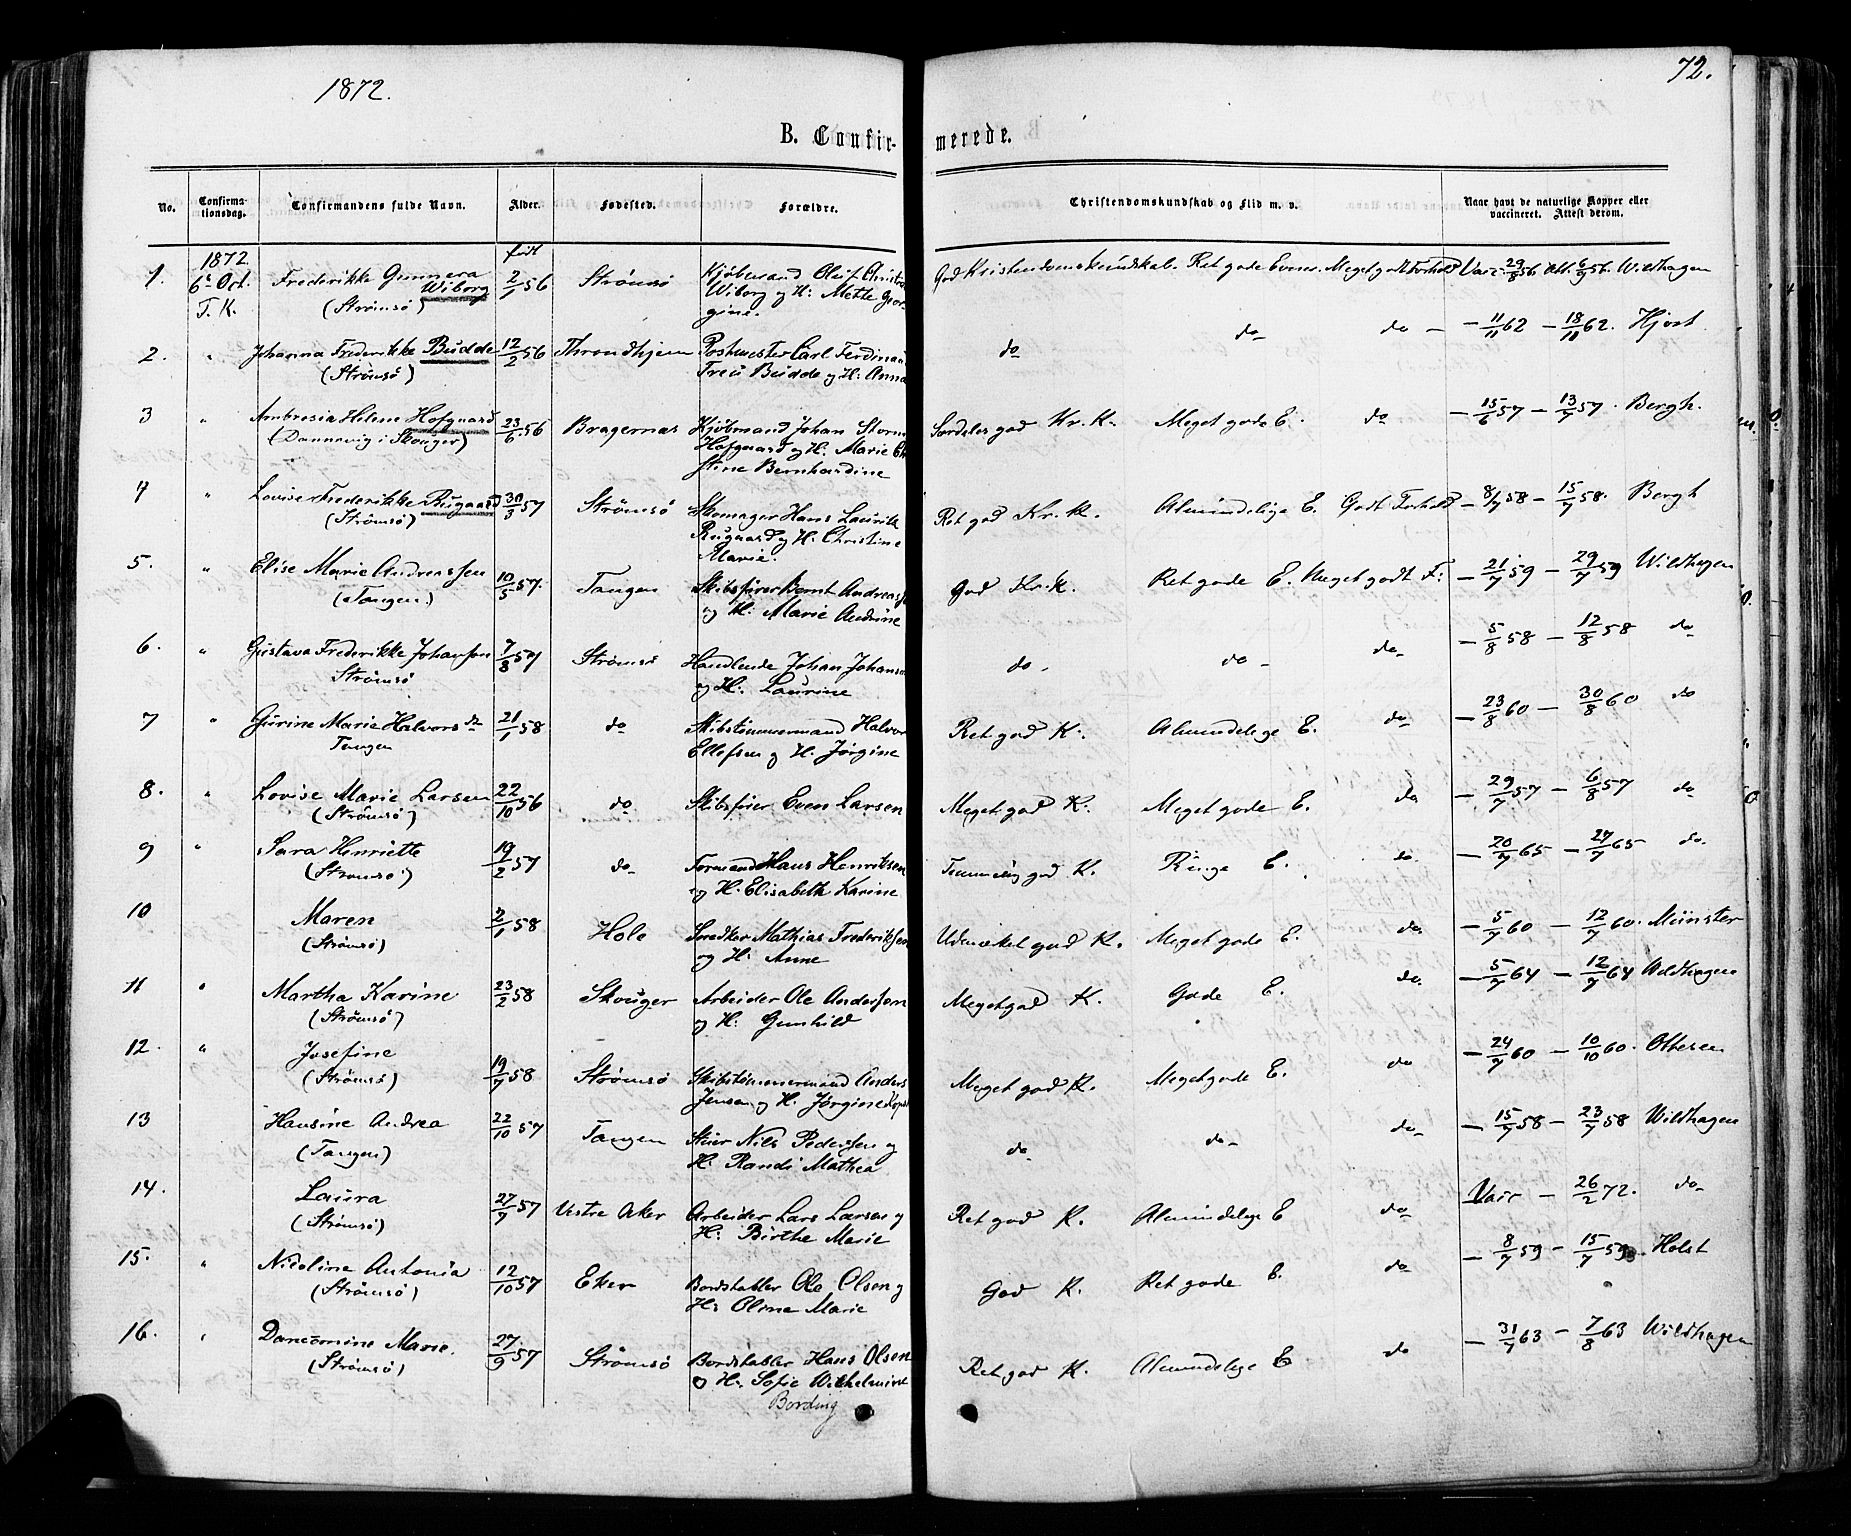 1872.
72.
B. Confirmerede.
No. Confirmationsdag. Confirmandens fulde Navn. Alder. Fødested. Forældre. Christendomskundskab og Flid m. v. Naar havt de naturlige Kopper eller vaccineret. Attest derom.
1872 født
1. 6te Oct. Frederikke Gunnera Wiborg 2/1 56 Strømsø Kjøbmand Oluf Christian God Kristendomskundskab. Ret gode Evner. Meget godt Forhold Vacc. 29/8 56 Att. 6/9 56. Wildhagen
T. K. (Strømsø) Wiborg og H: Mette Geor-
gine.
2. " Johanna Frederikke Budde 12/2 56 Throndhjem Postmester Carl Ferdinand do do do - - 11/11 62 - 18/11 62. Hjort
(Strømsø) Treu Budde og H: Anna
3 " Ambrosia Helene Hofgaard 23/6 56 Bragernæs Kjøbmand Johan Storm Særdeles god Kr. K. Meget gode E. do - 15/6 57 - 13/7 57. Bergh.
(Dannevig i Skouger) Hofgaard og H: Marie Chri-
stine Bernhardine
4 " Lovise Frederikke Rugaard 30/3 57 Strømsø Skomager Hans Lauritz Ret god Kr. K. Almindelige E. Godt Forhold - 8/7 58 - 15/7 58. Bergh
(Strømsø) Rugaard og H. Christine
Marie.
5. " Elise Marie Andreassen 10/5 57. Tangen Skibsfører Bernt Andreassen God Kr. K. Ret gode E. Meget godt F: - 21/7 59 - 29/7 59 Wildhagen
(Tangen) og H: Marie Andrine
6. " Gustava Frederikke Johansen 7/8 57 Strømsø Handlende Johan Johansen do - do - do - - 5/8 58 - 12/8 58 do
Strømsø og H: Laurine
7 " Gurine Marie Halvorsdr 21/1 58 do Skibstømmermand Halvor Ret god K. Almindelige E. do - 23/8 60 - 30/8 60 do
Tangen Ellefsen og H. Jørgine
8. " Lovise Marie Larsen 22/10 56 do Skibsfører Even Larsen Meget god K. Meget gode E. do - 29/7 57 - 6/8 57 do
(Strømsø)
9 " Sara Henriette 19/2 57 do Formand Hans Henriksen Temmelig god K. Ringe E. do - 20/7 65 - 27/7 65 do
(Strømsø) og H. Elisabeth Karine
10 Maren 2/1 58 Hole Snedker Mathias Frederiksen Udmærket god K. Meget gode E. do - 5/7 60 - 12/7 60. Münster
(Strømsø) og H. Anne
11 " Martha Karine 23/2 58 Skouger Arbeider Ole Andersen Meget god K. Gode E. do. - 5/7 64 - 12/7 64 Wildhagen
(Strømsø) og H: Gunhild
12. " Josefine 19/7 58 Strømsø Skibstømmermand Anders Meget god K. Meget gode E. do - 24/7 60 - 10/10 60. Ottesen
(Strømsø) Jensen og H. Jørgine
13 Hansine Andrea 22/10 57 Tangen Stuer Nils Pedersen og do do - do - - 15/7 58 - 23/7 58 Wildhagen
(Tangen) H: Randi Mathea
14. Laura 27/7 57 Vestre Aker Arbeider Lars Larsen og Ret god K. Almindelige E do - Vacc - 26/2 72. do
(Strømsø) H: Birthe Marie
15. " Nicoline Antonia 12/10 57 Eker Bordstabler Ole Olsen og God K. Ret gode E. do - 8/7 59 - 15/7 59. Holst
(Strømsø) H: Oline Marie
16. " Marie. 27/9 57 Strømsø Bordstabler Hans Olsen Ret god K. Almindelige E do - 31/7 63 - 7/8 63 Wildhagen
(Strømsø) og H. Sofie Wilhelmine
Bording